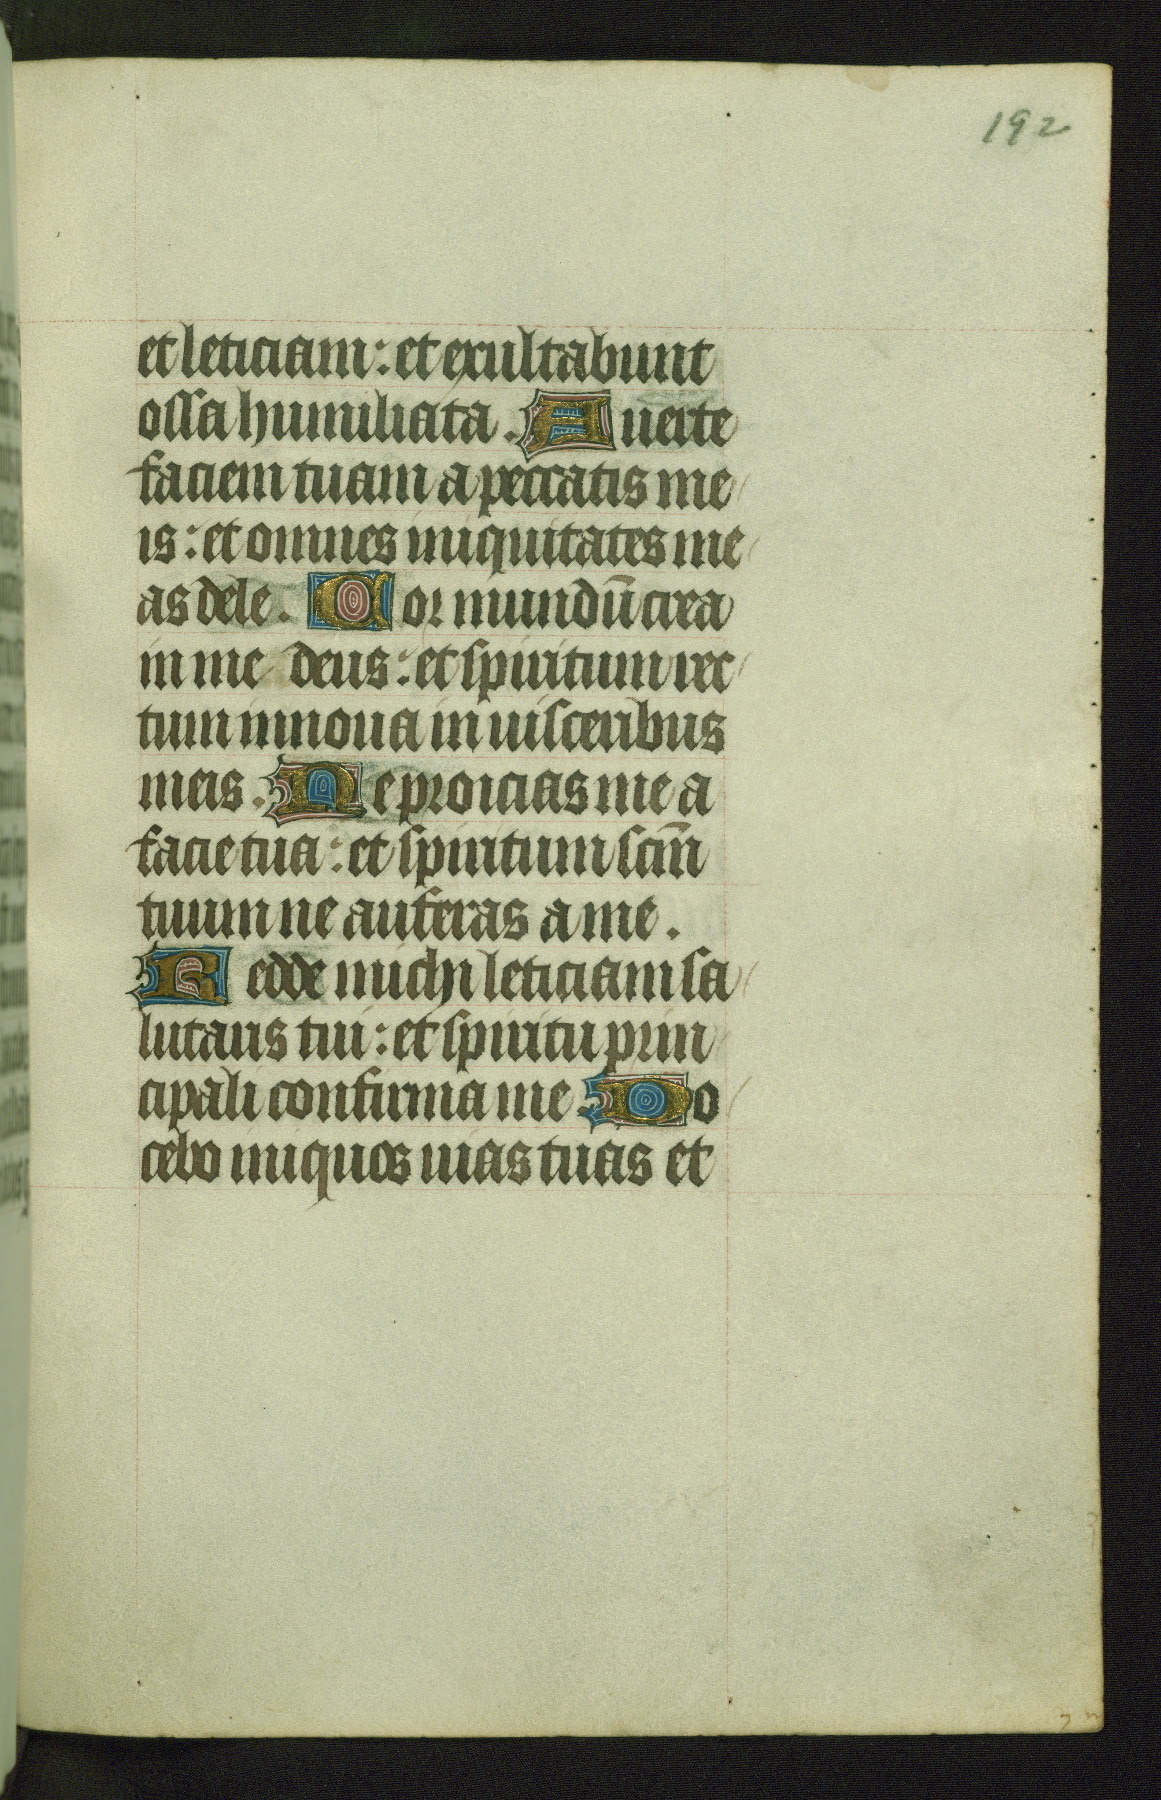 192
et leticiam: et exultabunt
ossa humiliata. Auerte
faciem tuam a peccatis me
is: et omnes iniquitates me
as dele. Cor mundū crea
in me deus: et spiritum rec
tum innoua in uisceribus
meis. Ne proicias me a
facie tua: et spiritum scm̄
tuum ne auferas a me.
Redde michi leticiam sa
lutaris tui: et spiritu prin
cipali confirma me. Do
cebo iniquos uias tuas et